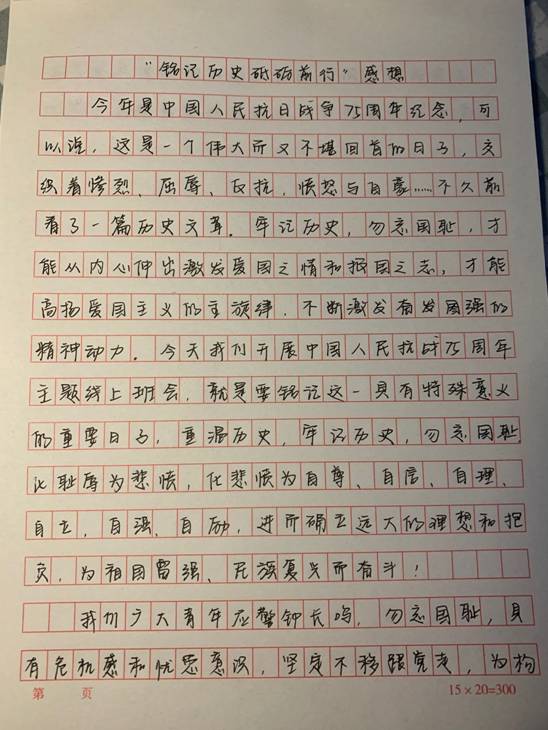 “铭记历史砥砺前行”感想
今年是中国人民抗日战争75周年纪念,可
以说,这是一个伟大而又不堪回首的日子,交
织着惨烈、屈辱、反抗,愤怒与自豪……不久前
看了一篇历史文章。牢记历史,勿忘国耻,才
能从内心伸出激发爱国之情和报国之志,才能
高扬爱国主义的主旋律,不断激发奋发图强的
精神动力。今天我们开展中国人民抗战75周年
主题线上班会,就是要铭记这一具有特殊意义
的重要日子,重温历史,牢记历史,勿忘国耻
化耻辱为悲愤,化悲愤为自尊、自信、自理、
自立,自强、自励,进而确立远大的理想和抱
负,为祖国富强、民族复兴而奋斗!
我们广大青年应警钟长鸣,勿忘国耻,具
有危机感和忧患意识,坚定不移跟党走,为构
第 页
15×20=300